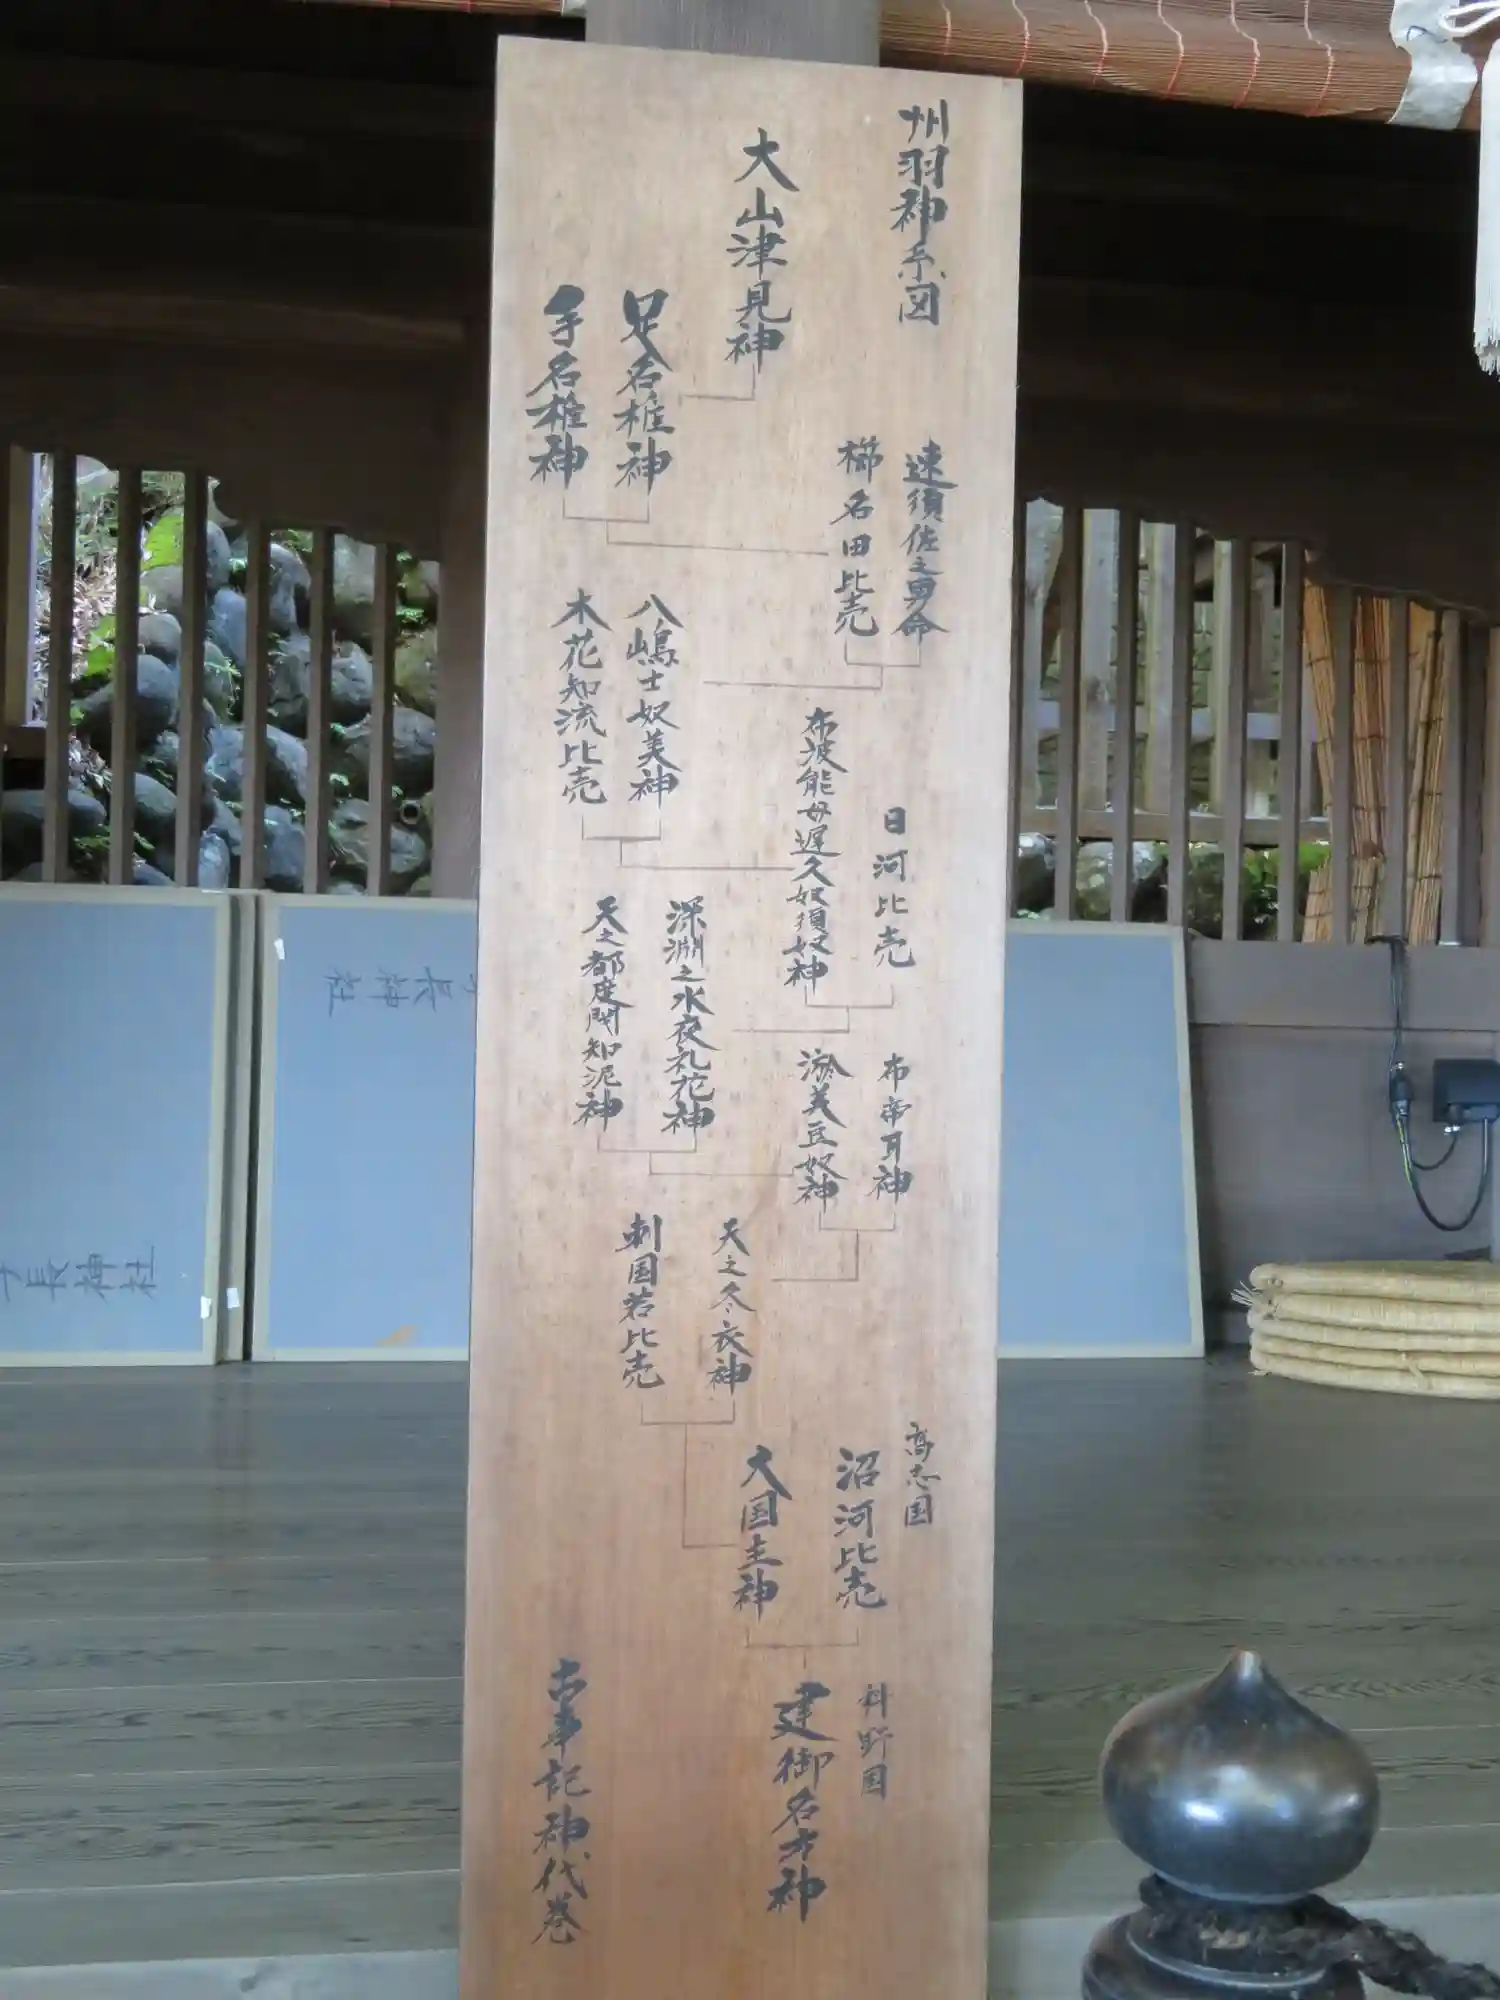 州羽神系図
大山津見神
足名椎神
手名椎神
速須佐之男命
櫛名田比売
八嶋士奴美神
木花知流比売
日河比売
布波能母遅久奴須奴神
深淵之水夜礼花神
天之都度閇知泥神
布帝耳神
淤美豆奴神
天之冬衣神
刺国若比売
高志国
沼河比売
大国主神
科野国
建御名方神
古事記神代巻
長神社
長神社